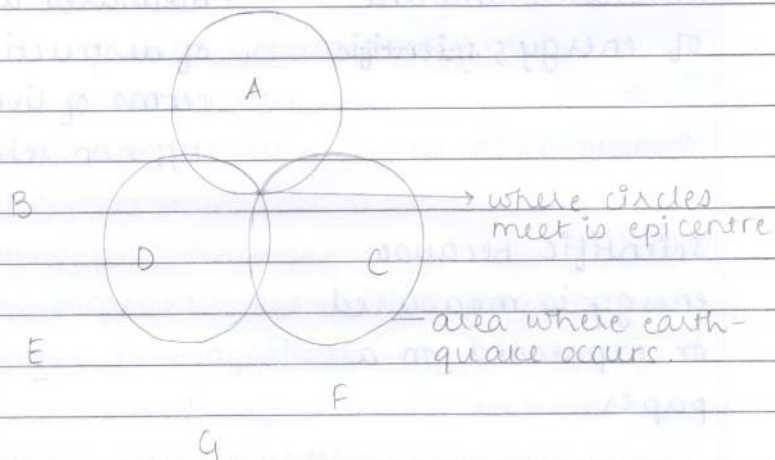 A
B
→ where circles
meet is epicentre
D
C
area where earth-
quake occurs.
E
F
G